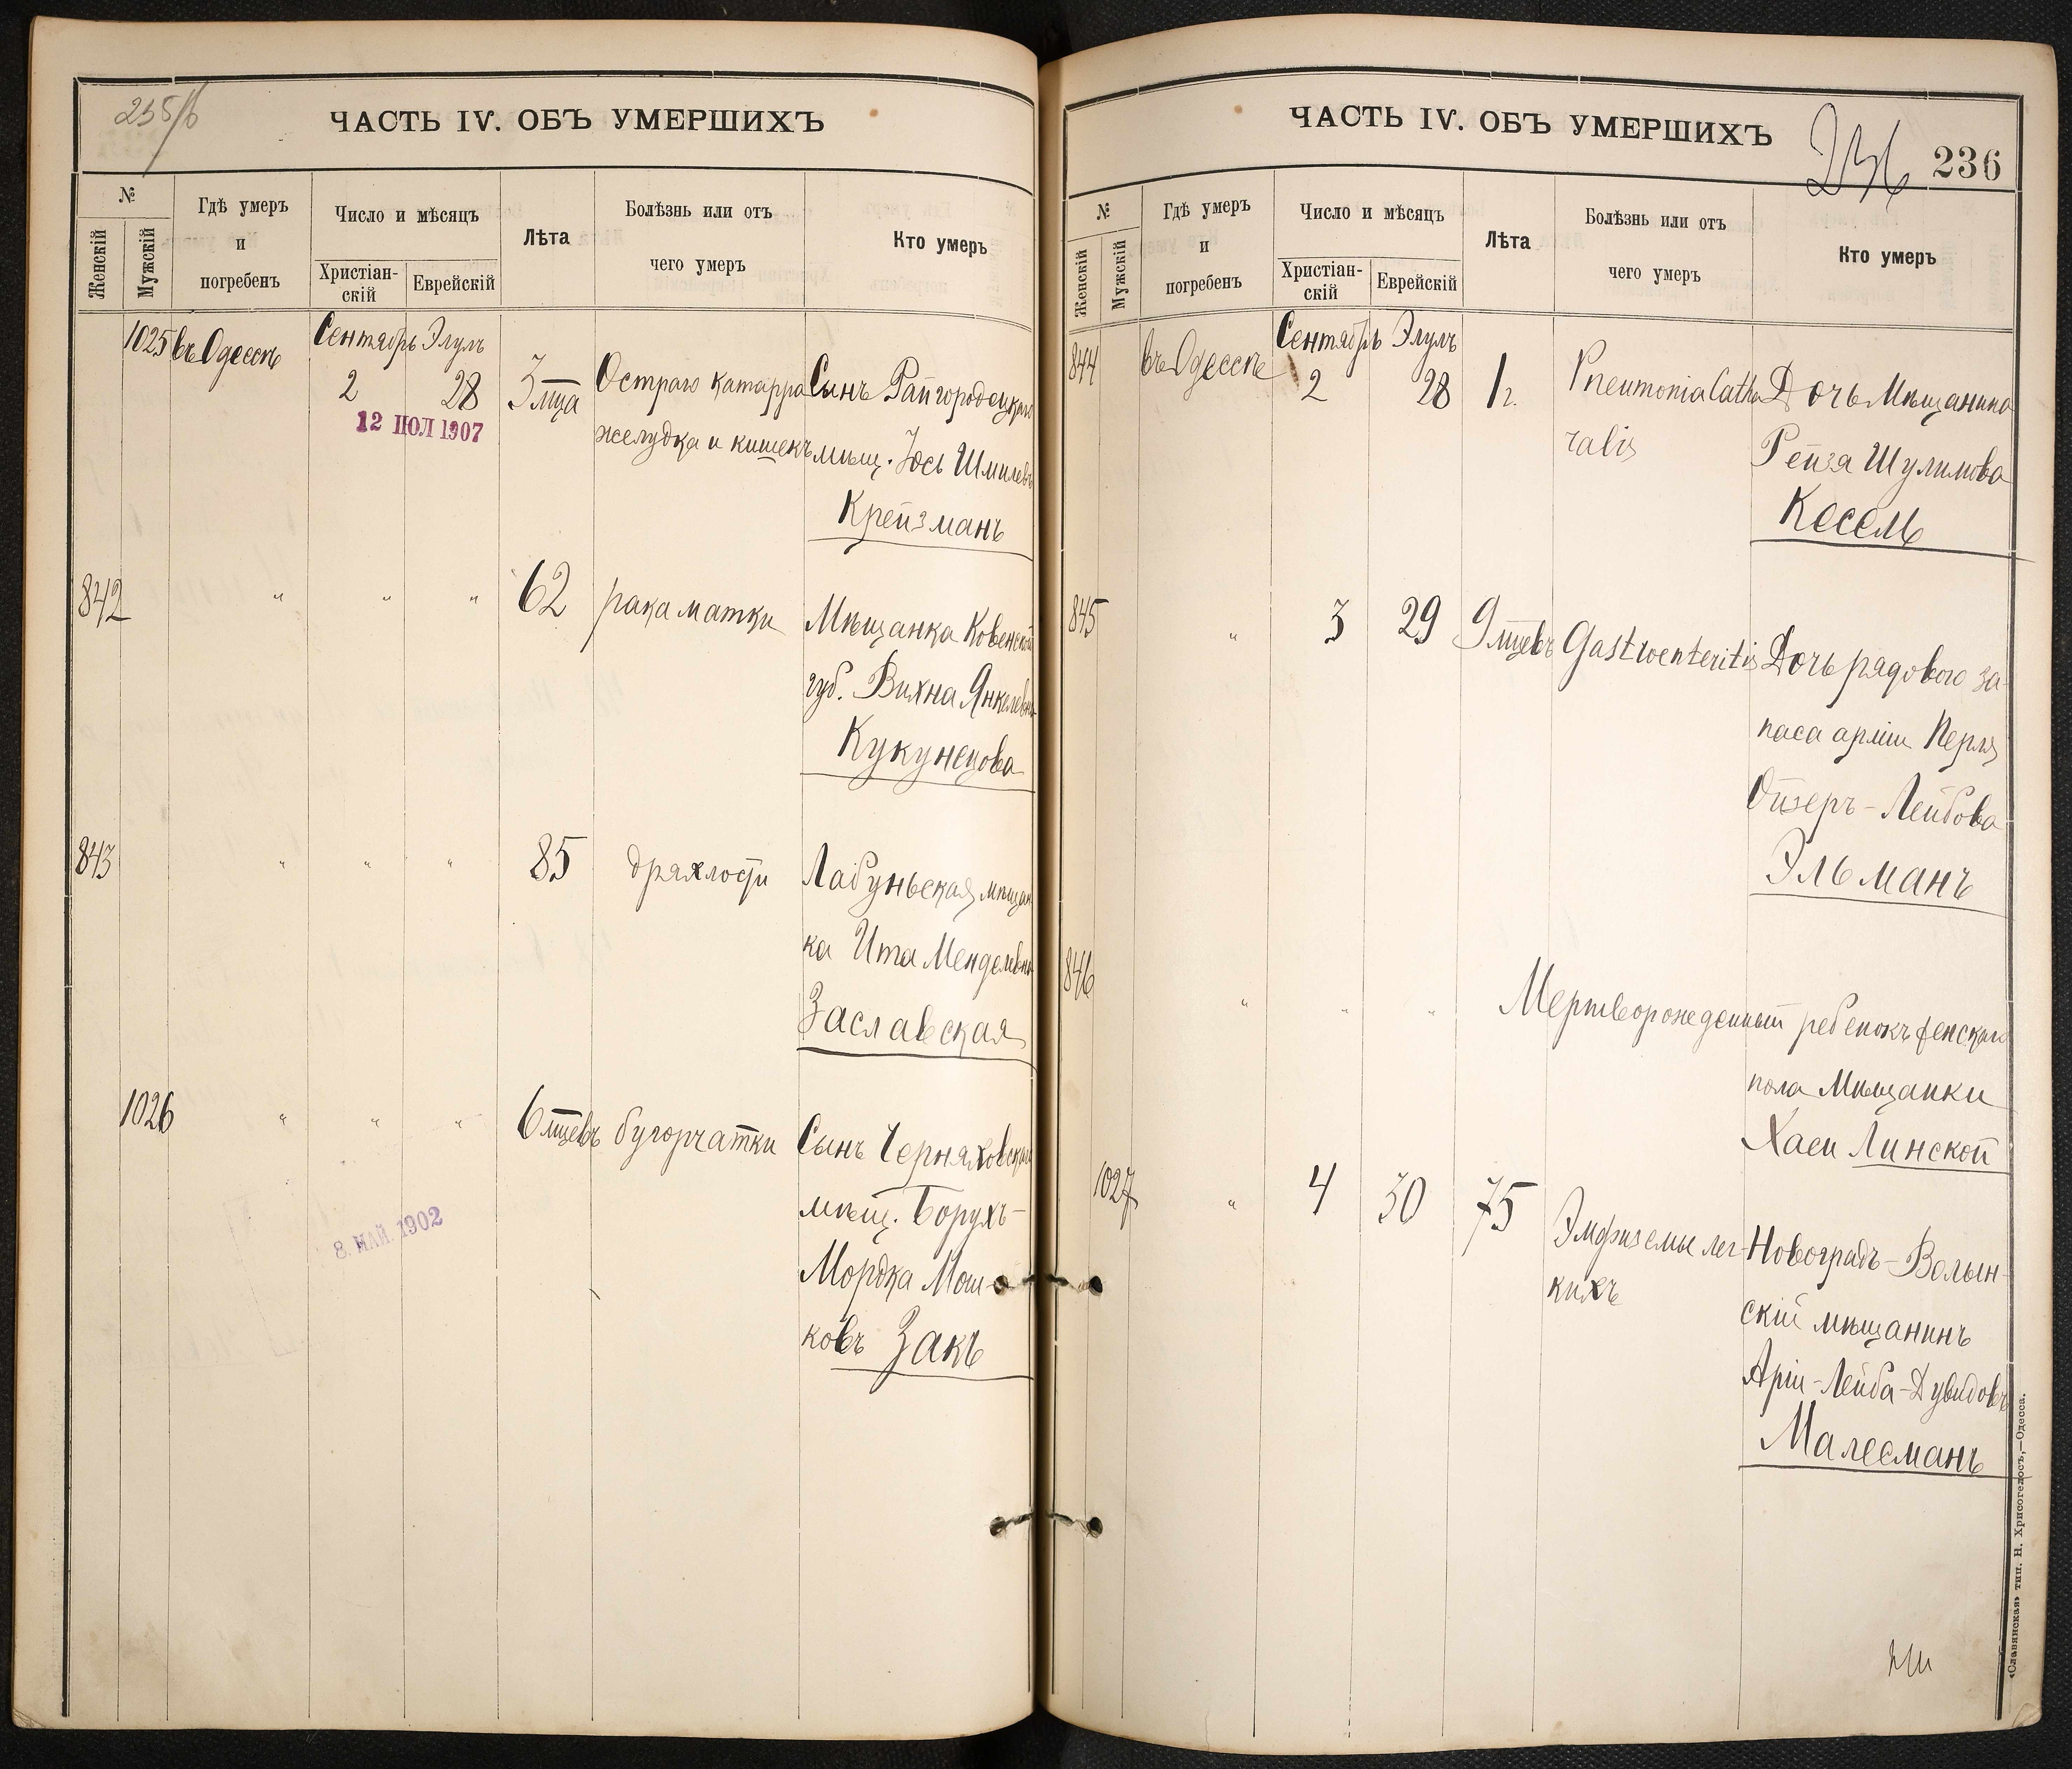 235/б
ЧАСТЬ IV. ОБЪ УМЕРШИХЪ
№
Женскій
Мужскій
Гдѣ умеръ
и
погребенъ
Число и мѣсяцъ
Христіан-
скій
Еврейскій
Лѣта
Болѣзнь или отъ
чего умеръ
Кто умеръ
1025 въ Одессѣ Сентябрь Элулъ
2 28 3 мца Остраго катарра Сынъ Райгородецкаго
12 ІЮЛ 1907
желудка и кишекъ мѣщ. Іось Шмилевъ
Крейзманъ
842 " " " 62 рака матки Мѣщанка Ковенской
губ. Вихна Янкелевна
Кукунецова
843 " " " 85 дряхлости Лабуньская мѣщан
ка Ита Менделевна
Заславская
1026 " " " 6 мцевъ бугорчатки Сынъ Черняховскаго
мѣщ. Борухъ-
8. МАЙ. 1902
Мордка Мош-
ковъ Закъ
ЧАСТЬ IV. ОБЪ УМЕРШИХЪ
236
236
№
Женскій
Мужскій
Гдѣ умеръ
и
погребенъ
Число и мѣсяцъ
Христіан-
скій
Еврейскій
Лѣта
Болѣзнь или отъ
чего умеръ
Кто умеръ
844 въ Одессѣ Сентябрь Элулъ
2 28 1 г. Pneumonia Catha Дочь Мѣщанина
ralis Рейза Шулимова
Кесель
845 " 3 29 9 мцевъ Gastroenteritis Дочь рядового за-
паса арміи Перля
Ойзеръ-Лейбова
Эльманъ
846 " " " Мертворожденный ребенокъ женскаго
пола Мѣщанки
Хаси Линской
1027 " 4 30 75 Эмфиземы лег- Новоградъ-Волын-
кихъ скій мѣщанинъ
Арій-Лейба-Дувидовъ
Малесманъ
«Славянская» тип. Н. Хрисогелосъ,—Одесса.